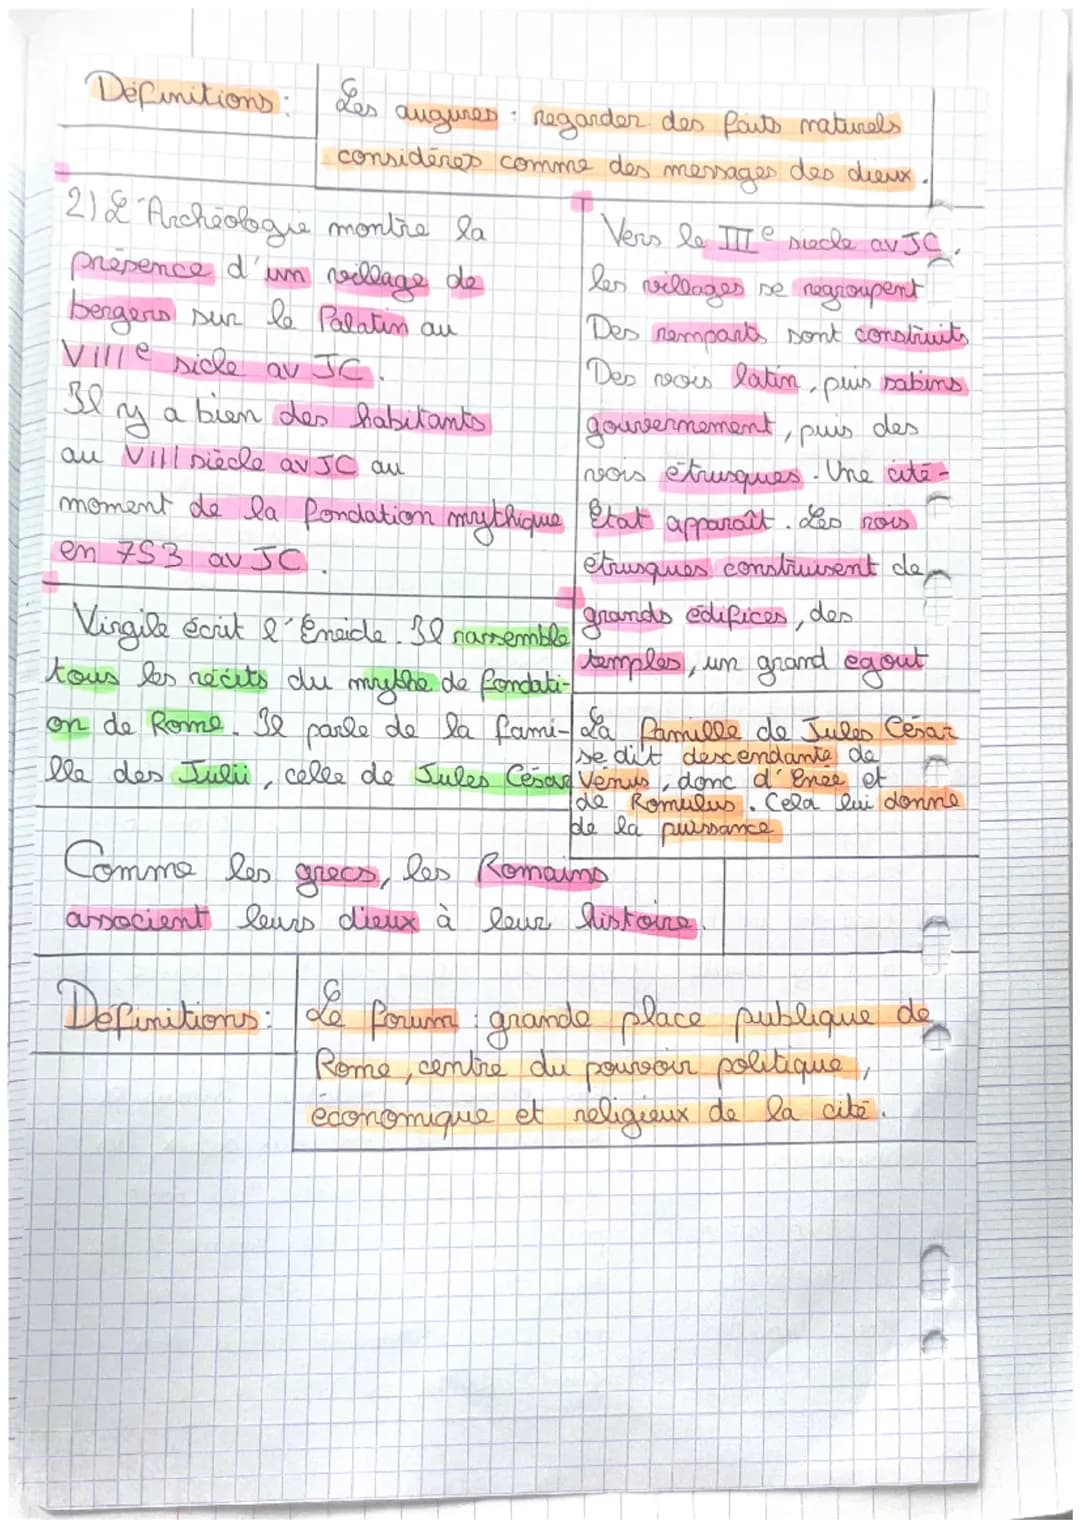 Définitions :
Les augures : regarder des faits naturels
considérés comme des messages des dieux.
2) L'Archéologie montre la
présence d'un village de
bergers sur le Palatin au
VIIIe sicle av JC.
Il y a bien des habitants
au VIII siècle av JC au
moment de la fondation mythique
en 753 av JC.
Vers le IIIe siecle av JC.
les villages se regroupent
Des remparts sont construits
Des rois latin, puis sabins
gouvernement, puis des
rois étrusques. Une cité-
État apparaît. Les rois
étrusques construisent de
grands édifices, des
temples, un grand egout
Virgile écrit l'Eneide. Il rassemble
tous les récits du mythe de fondati-
on de Rome. Il parle de la fami-
lle des Julii, celle de Jules César
La famille de Jules César
se dit descendante de
Vénus, donc d'Enée et
de Romulus. Cela lui donne
de la puissance
Comme les grecs, les Romains
associent leurs dieux à leur histoire.
Définitions :
Le forum : grande place publique de
Rome, centre du pouvoir politique,
économique et religieux de la cité.